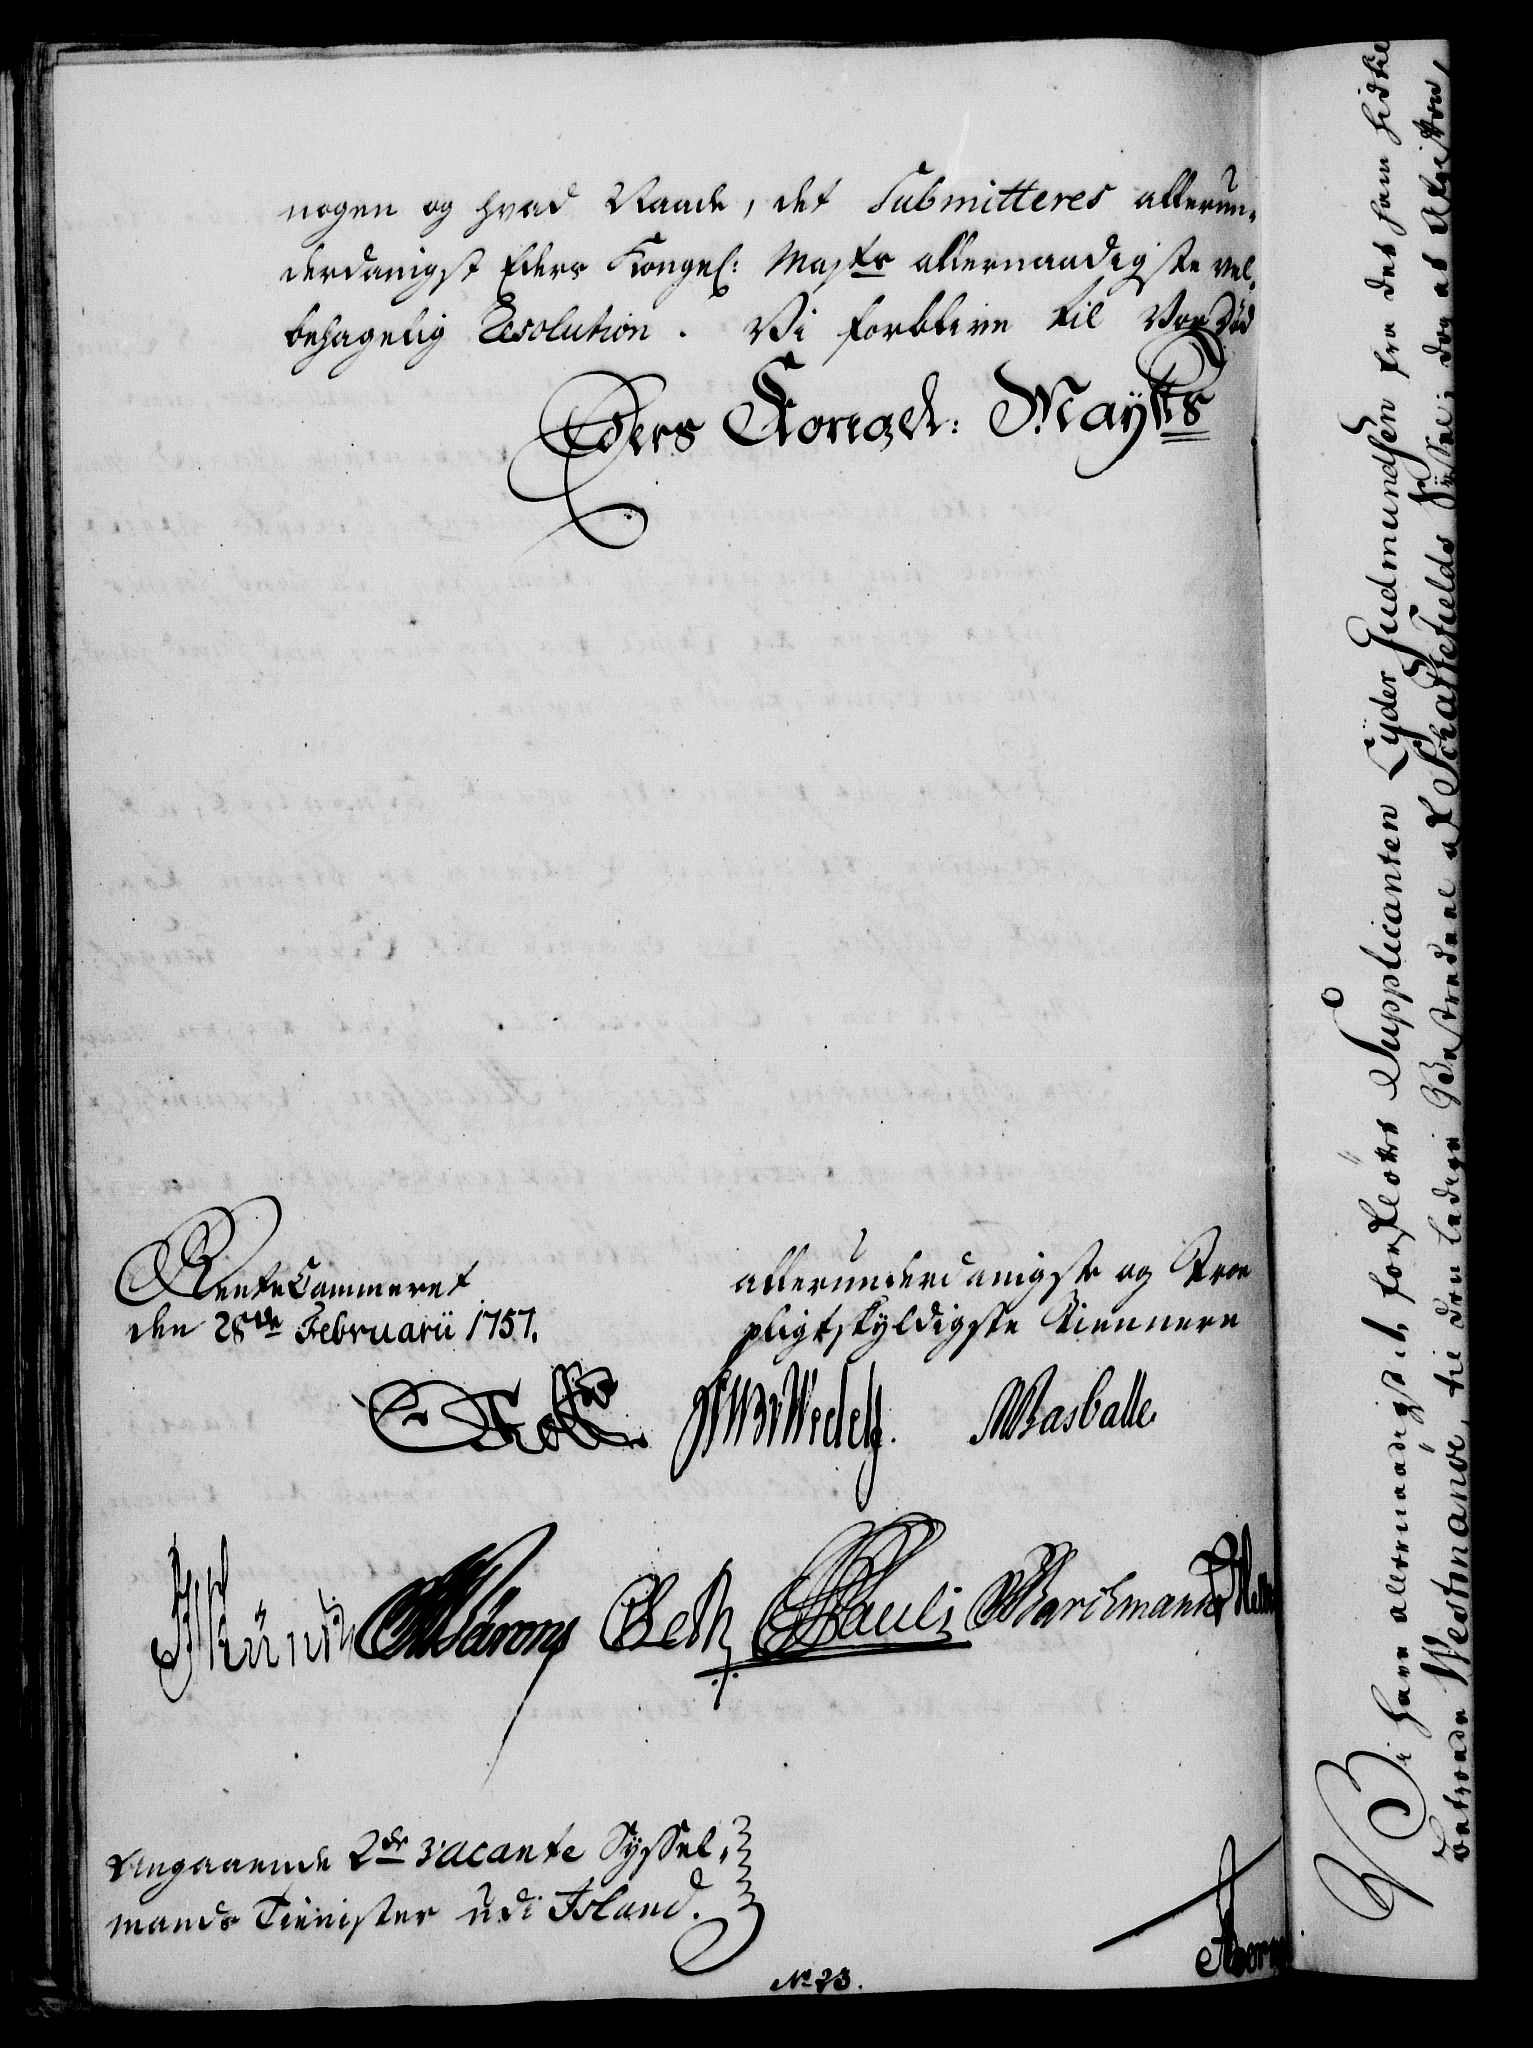 nogen og hvad Naade, det Submitteres allerun-
derdanigst Eders Kongel: Mayts allernaadigste vel-
behagelig Resolution. Vi forblive til Vor Død
Eders Kongel: Mayts
RenteCammeret
den 28de Februarii 1757.
allerunderdanigste og Troe
pligtskyldigste Tiennere
Holst HWvWedell. Basballe
Pauli Barchmann
Angaaende 2de vacante Syssel-
mands Tienister udi Island.
No 23.
Vi have allernaadigst, forfløtt Supplicanten Lyder Gudmundsen fra det ham hidtil
betroede Westmanöe, til den ledige Bestredene af Schaftefields Syssel; dog at Afgiften,